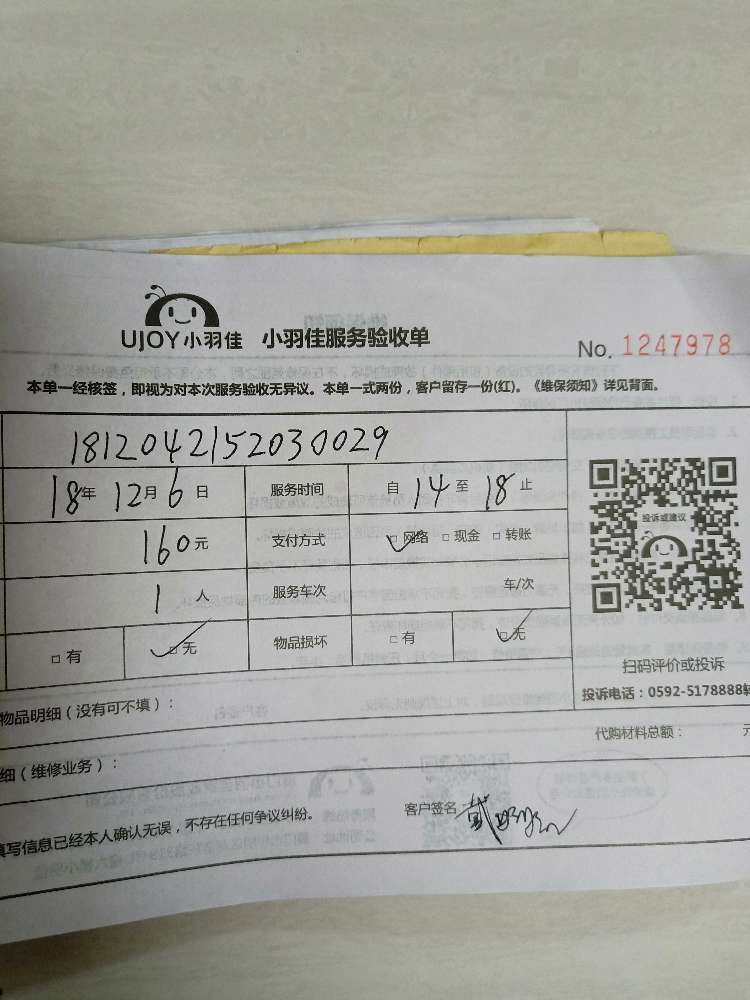 UJOY小羽佳 小羽佳服务验收单
No. 1247978
本单一经核签，即视为对本次服务验收无异议。本单一式两份，客户留存一份(红)。《维保须知》详见背面。
1812042152030029
18年 12月 6日 服务时间 自 14 至 18 止
160元 支付方式 □网络 □现金 □转账
投诉或建议
1人 服务车次 车/次
□有 □无 物品损坏 □有 □无
扫码评价或投诉
投诉电话：0592-5178888转
物品明细（没有可不填）：
代购材料总额：
细（维修业务）：
客户签名
填写信息已经本人确认无误，不存在任何争议纠纷。